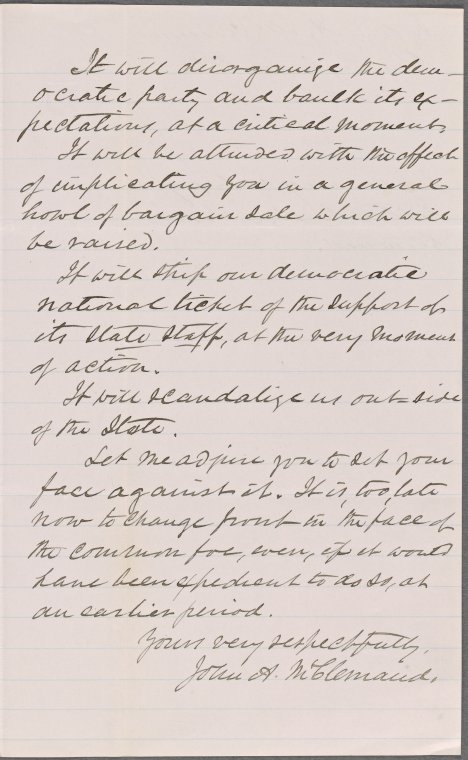 It will disorganize the dem-
ocratic party and baulk its ex-
pectations, at a critical moment.
It will be attended with the effect
of implicating you in a general
howl of bargain sale which will
be raised.
It will strip our democratic
national ticket of the support of
its State Staff, at the very moment
of action.
It will scandalize us out-side
of the State.
Let me adjure you to set your
face against it. It is, too, late
now to change front in the face of
the common foe, even, if it would
have been expedient to do so, at
an earlier period.
Yours very respectfully,
John A. McClernand.